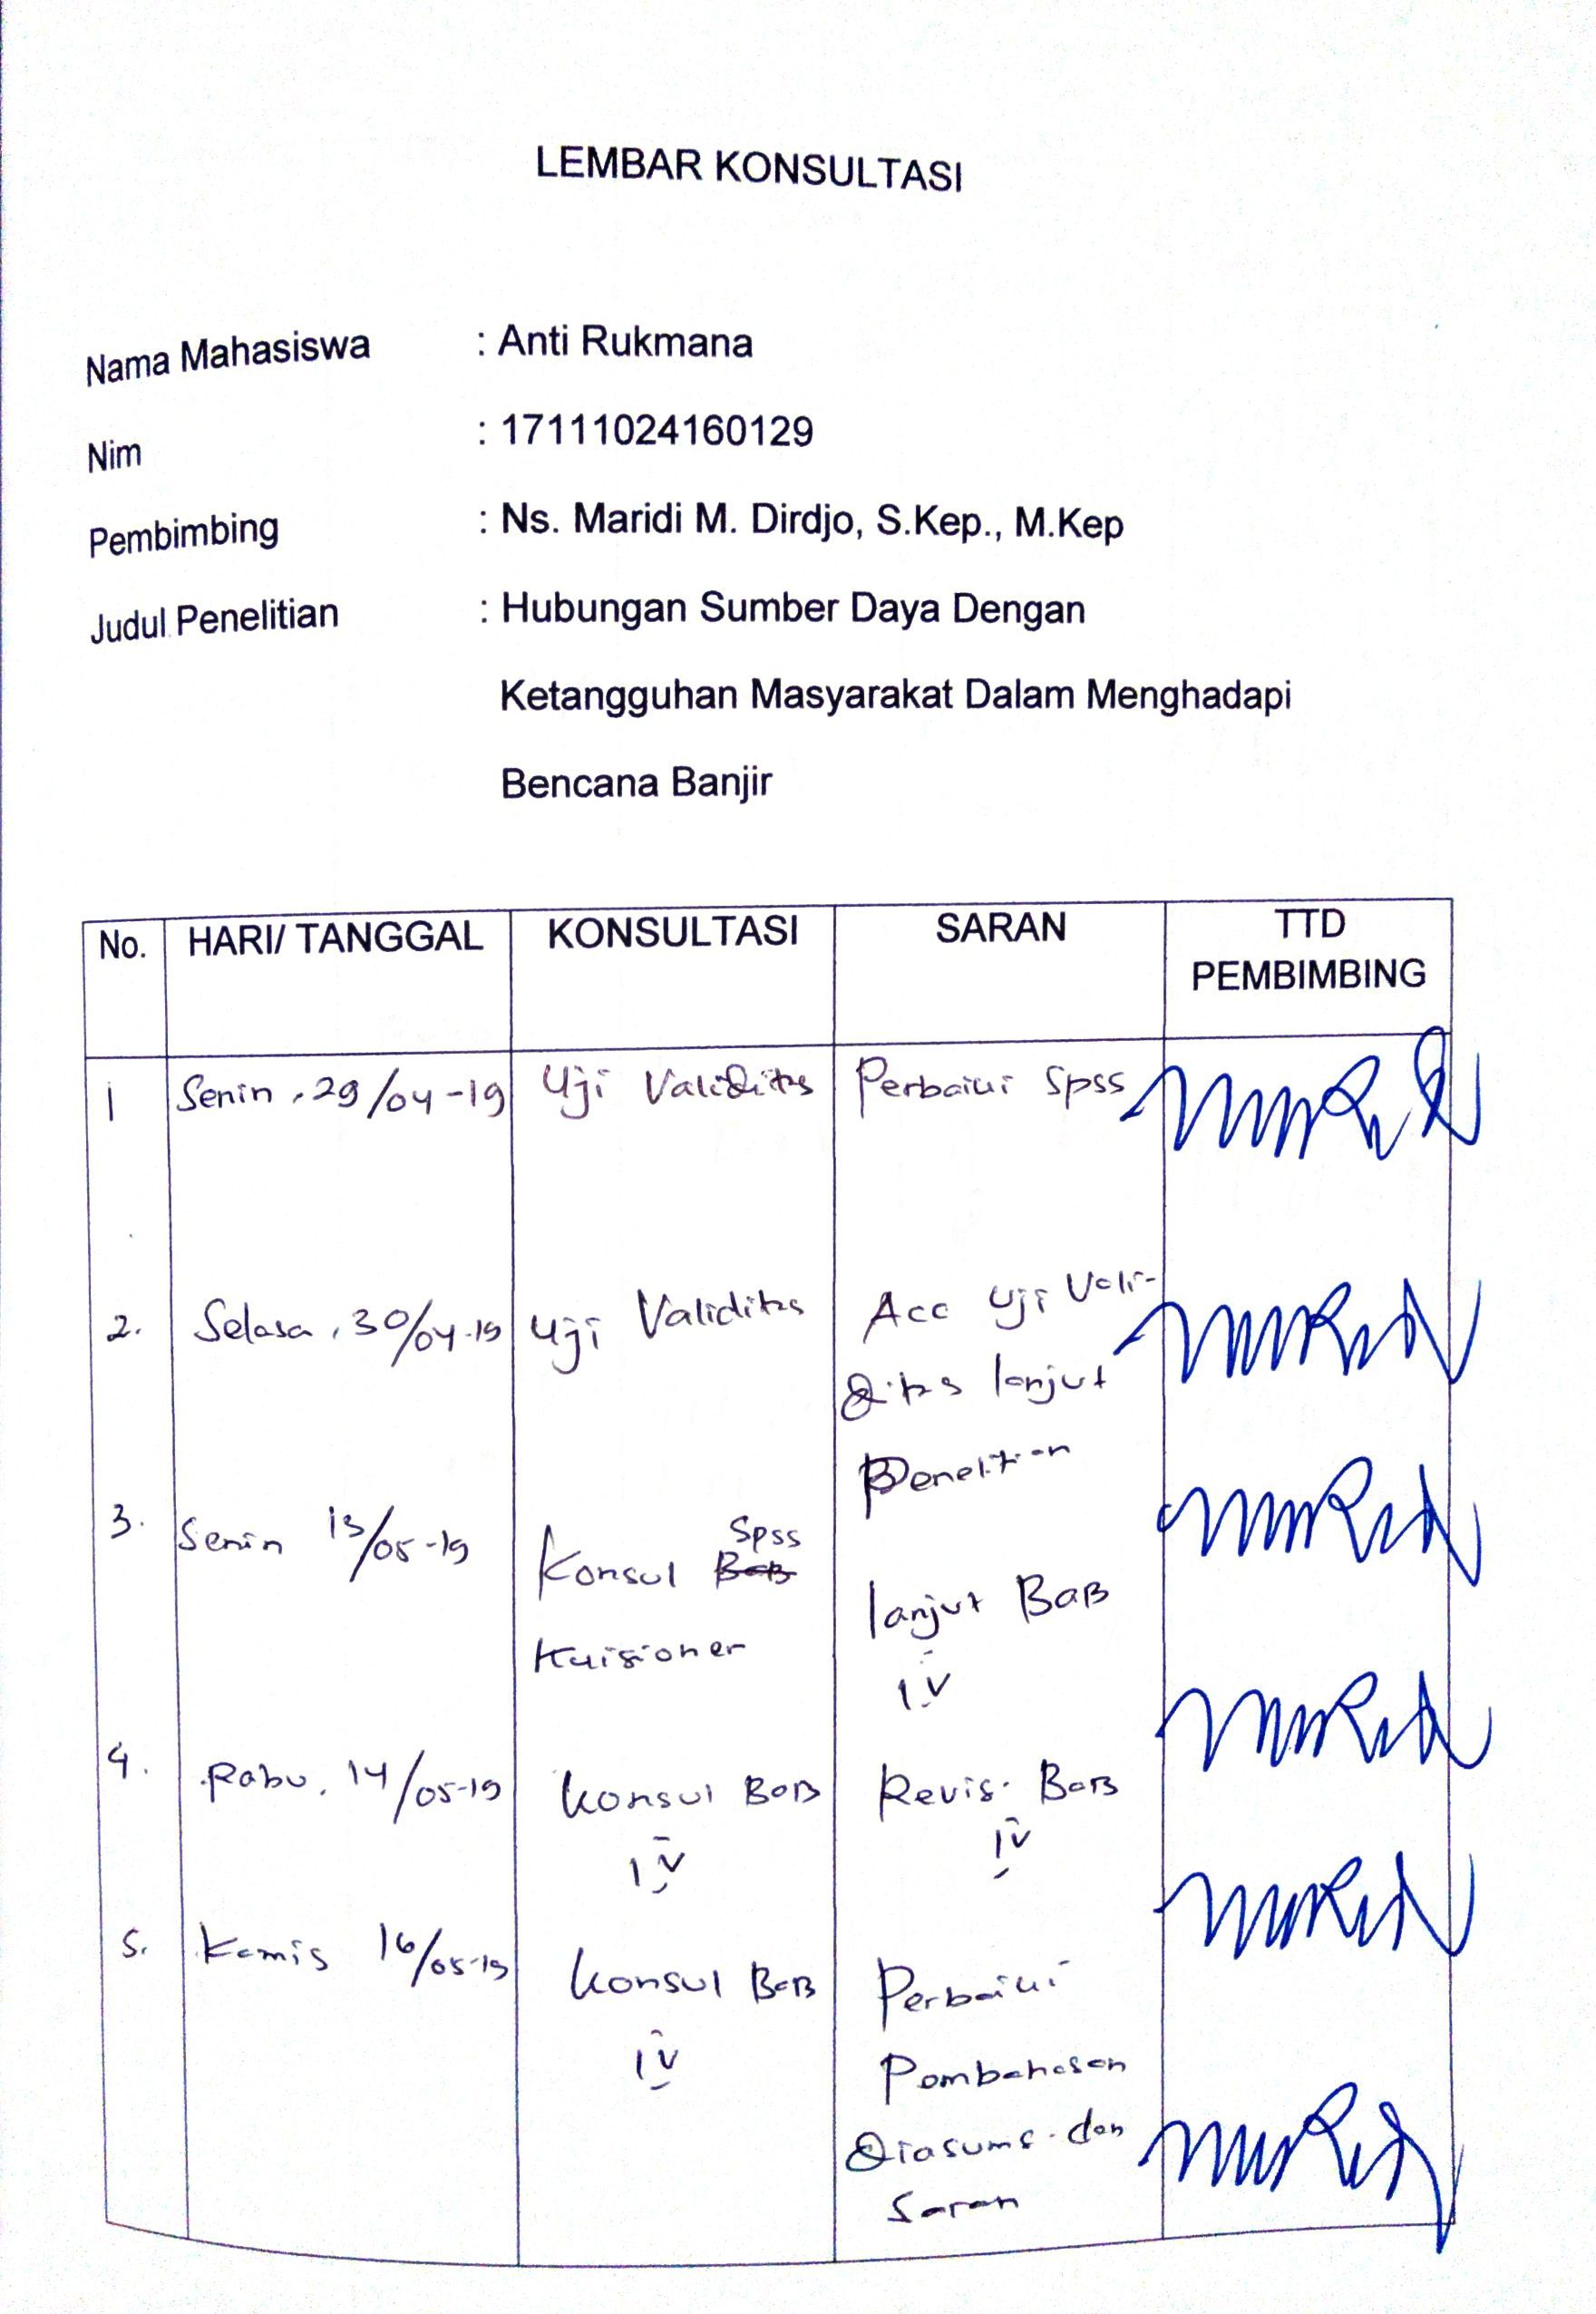 LEMBAR KONSULTASI
Nama Mahasiswa : Anti Rukmana
Nim : 17111024160129
Pembimbing : Ns. Maridi M. Dirdjo, S.Kep., M.Kep
Judul Penelitian : Hubungan Sumber Daya Dengan
Ketangguhan Masyarakat Dalam Menghadapi
Bencana Banjir
No. HARI/ TANGGAL KONSULTASI SARAN TTD
PEMBIMBING
1 Senin, 29/04-19 Uji Validitas Perbaiki Spss
2. Selasa, 30/04-19 Uji Validitas Acc Uji Vali-
ditas lanjut
Penelitian
3. Senin 13/05-19 Konsul Spss
Kuisioner
lanjut BaB
IV
4. Rabu, 14/05-19 Konsul BaB Revisi BaB
IV IV
5. Kamis 16/05-19 Konsul BaB Perbaiki
IV Pembahasan
diasumsi dan
Saran